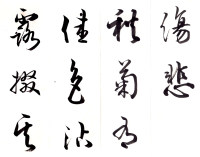 傷悲
秋菊有
佳色浥
露掇其